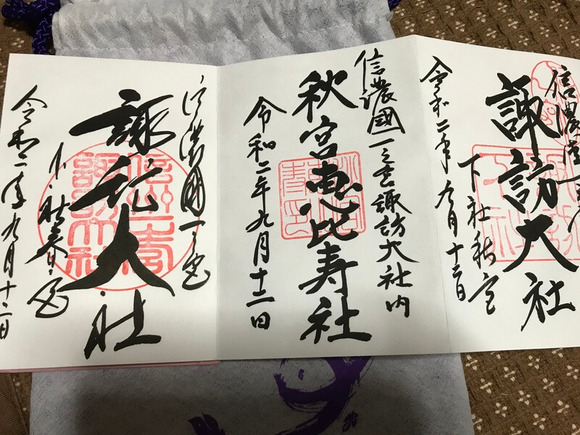 信濃國一
諏訪大社
下社秋宮
令和二年九月十二日
信濃國一之宮諏訪大社内
秋宮惠比寿社
令和二年九月十二日
信濃國一之宮
諏訪大社
下社春宮
令和二年九月十二日